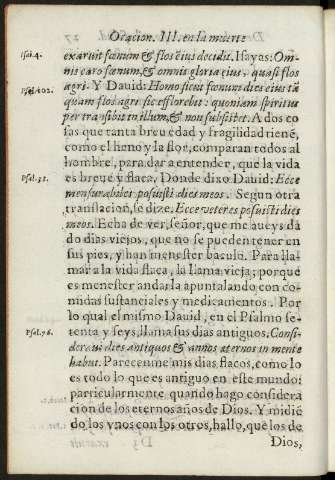 Oracion. III. en la muerte
Isai. 4.
exaruit fœnum, & flos eius decidit. Isayas: Om-
nis caro fœnum, & omnis gloria eius, quasi flos
Psal. 102.
agri. Y Dauid: Homo sicut fœnum dies eius tã
quam flos agri sic efflorebit: quoniam spiritus
per transibit in illum, & non subsistet. A dos co
sas que tanta breuedad y fragilidad tienē,
como el heno y la flor, comparan todos al
hombre, para dar a entender, que la vida
es breue y flaca. Donde dixo Dauid: Ecce
Psal. 38.
mensurabiles posuisti dies meos. Segun otra
translacion, se dize. Ecce veteres posuisti dies
meos. Echa de ver, señor, que me aueys da
do dias viejos, que no se pueden tener en
sus pies, y han menester baculo. Para lla-
mar a la vida flaca, la llama vieja: porque
es menester andarla apuntalando con co-
midas sustanciales y medicamentos. Por
lo qual el mismo Dauid, en el Psalmo se-
tenta y seys, llama sus dias antiguos. Consi
Psal. 76.
deraui dies antiquos & annos æternos in mente
habui. Parecenme mis dias flacos, como lo
es todo lo que es antiguo en este mundo:
particularmente quando hago considera
cion de los eternos años de Dios. Y midiē
do los vnos con los otros, hallo, que los de
Dios,